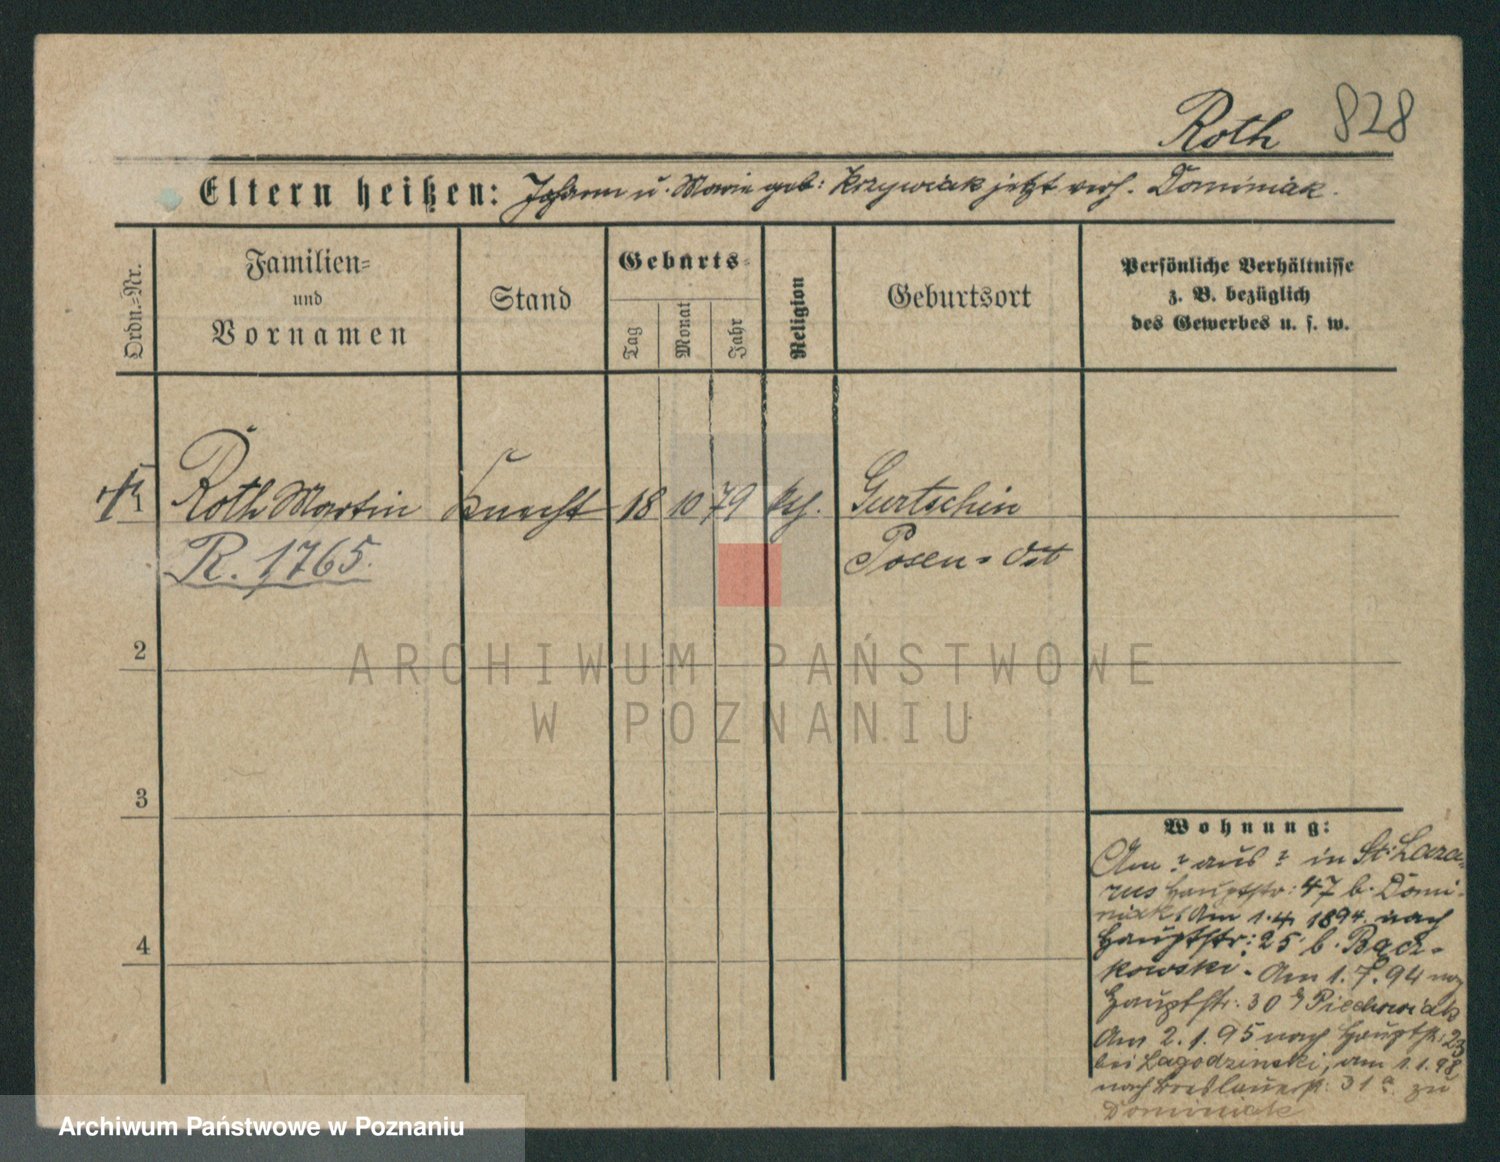 Roth 828
Eltern heißen: Johann u. Marie geb: Krzywiak jetzt verh. Dominiak.
Ordn.=Nr.
Familien=
und
Vornamen
Stand
Geburts=
Tag
Monat
Jahr
Religion
Geburtsort
Persönliche Verhältnisse
z. B. bezüglich
des Gewerbes u. s. w.
1 Roth Martin Knecht 18 10 79 kth. Gurtschin
R. 1765. Posen=Ost
2
3
4
Wohnung:
Am ? aus ? in St: Laza=
rus Hauptstr: 47 b. Domi-
niak. Am 1.4. 1894. nach
Hauptstr: 25 b. Bącz=
kowski. Am 1.7.94 nach
Hauptstr: 30 b Piechowiak
Am 2.1.95 nach Hauptstr: 23
bei Lagodzinski, am 1.1.98
nach Breslauerstr: 31a zu
Dominiak
ARCHIWUM PAŃSTWOWE
W POZNANIU
Archiwum Państwowe w Poznaniu